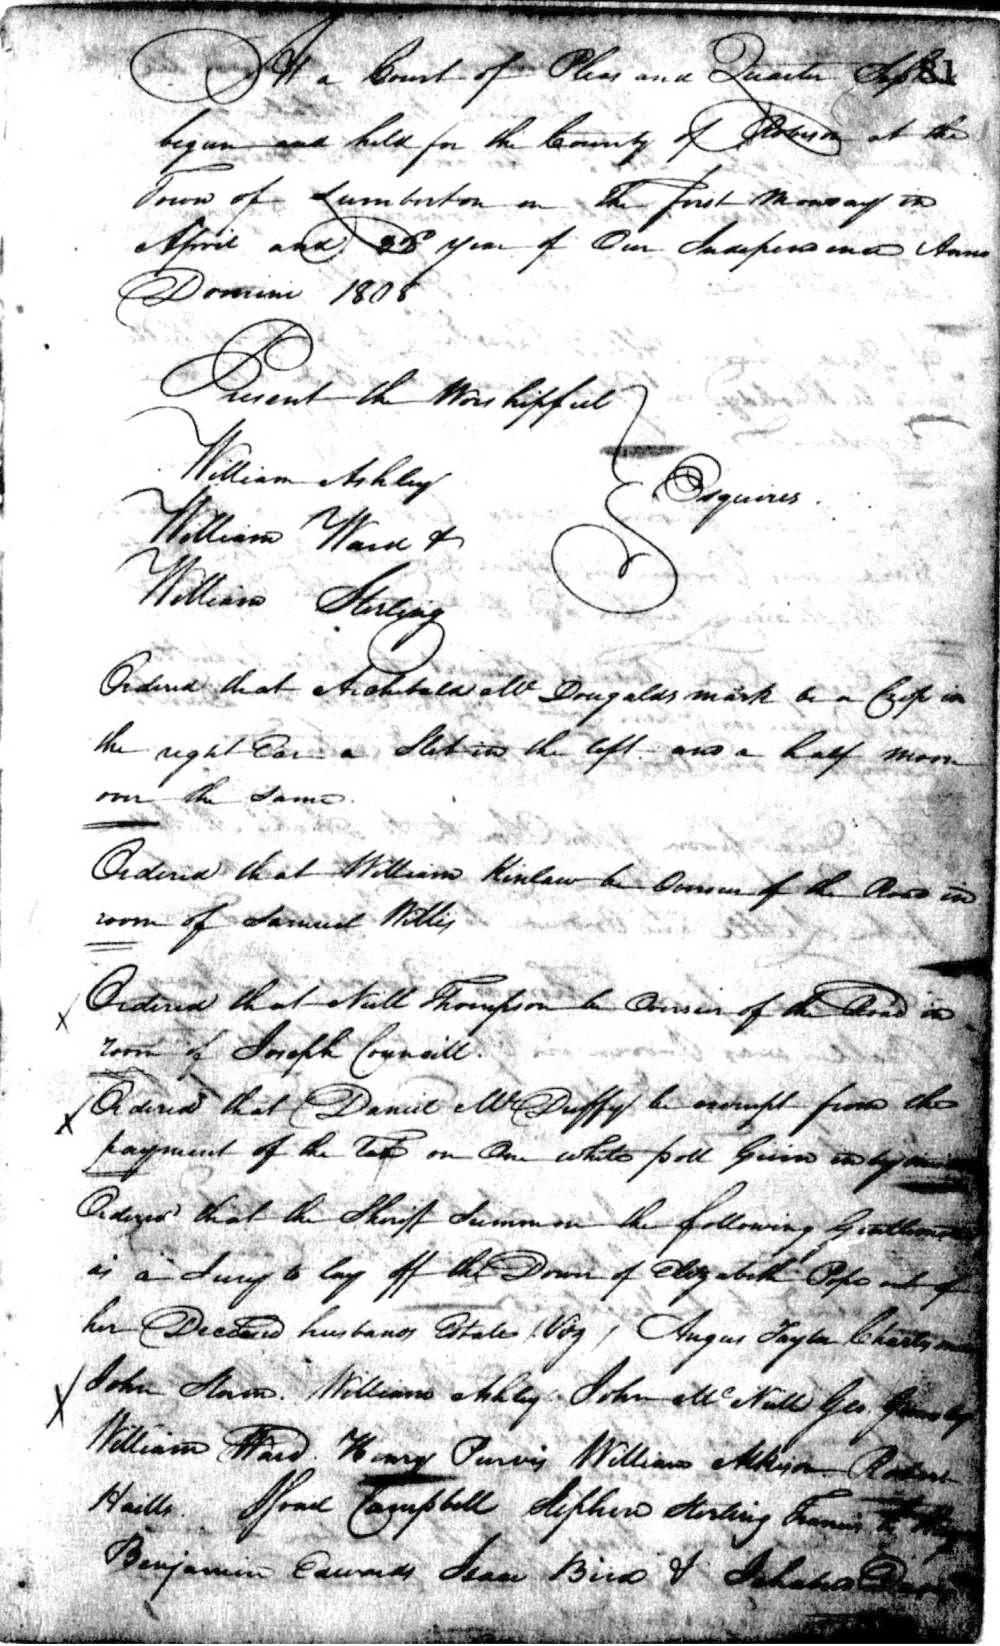 81
At a Court of Pleas and Quarter
begun and held for the County of Robeson at the
Town of Lumberton on The first Monday in
April and year of Our Independence Anno
Domini 1808
Present the Worshipful
William Ashley
Esquires.
William Ward &
William Sterling
Ordered that Archibald McDougalds mark be a Crop in
the right Ear a Slit in the left and a half moon
over the Same.
Ordered that William Kinlaw be Overseer of the Road in
room of Samuel Willis
x Ordered that Neill Thompson be Overseer of the Road in
room of Joseph Councill.
x Ordered that Daniel McDuffy be exempt from the
payment of the Tax on One white poll Given in by
Ordered that the Sheriff Summon the following Gentlemen
as a Jury to lay off the Dower of Elizabeth Pope out of
her Deceased husbands Estate (Viz) Angus Taylor
x John William Ashley John McNeill Geo.
William Ward. Henry Purvis William Atkison
Israel Campbell Stephen Sterling Francis
Benjamin Edwards Isaac Bird &